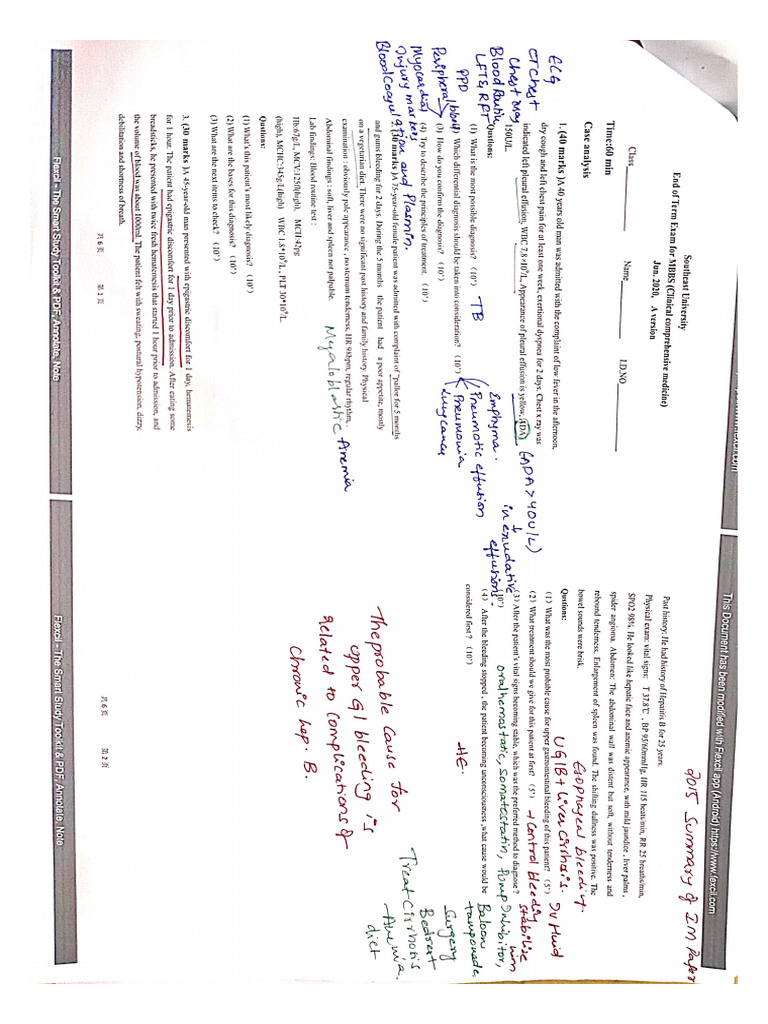 This Document has been modified with Flexcil app (Android) https://www.flexcil.com
2015 Summary of IM Paper
Southeast University
End of Term Exam for MBBS (Clinical comprehensive medicine)
Jun. 2020, A version
Class
Name
I.D.NO
Time:60 min
Case analysis
ECG
CT Chest
Chest Xray
Blood Routine
LFTS, RFT
PPD
Peripheral blood
Myocardial
injury markers
Blood Coagulation and Plasmin.
1. (40 marks )A 40 years old man was admitted with the complaint of low fever in the afternoon,
dry cough and left chest pain for at least one week, exertional dyspnea for 2 days. Chest x ray was
indicated left pleural effusion, WBC 7.8×10⁹/L, Appearance of pleural effusion is yellow, ADA
150U/L.
(ADA > 40 U/L)
in exudative
effusions.
Qustions:
(1) What is the most possible diagnosis? (10’)
TB
(2) Which differential diagnosis should be taken into consideration? (10’)
Emphyma.
Pneumotic effusion
Pneumonia
Lung cancer
(3) How do you confirm the diagnosis? (10’)
(4) Try to describe the principles of treatment. (10’)
2. (30 marks )A 75-year-old female patient was admitted with complaint of "pallor for 5 months
and gums bleeding for 2 days. During the 5 months the patient had a poor appetite, mostly
on a vegetarian diet. There were no significant past history and family history. Physical
examination : obviously pale appearance , no sternum tenderness, HR 98bpm, regular rhythm, .
Abdominal findings : soft, liver and spleen not palpable.
Myaloblastic Anemia
Lab findings: Blood routine test :
Hb:67g/L, MCV:125fl(high), MCH:42pg
(high), MCHC:345g/L(high) WBC 1.8*10⁹/L, PLT 30*10⁹/L.
Qustions:
(1) What's this patient's most likely diagnosis? (10’)
(2) What are the bases for this diagnosis? (10’)
(3) What are the next items to check? (10’)
3. (30 marks )A 45-year-old man presented with epigastric discomfort for 1 day, hematemesis
for 1 hour. The patient had epigastric discomfort for 1 day prior to admission. After eating some
breadsticks, he presented with twice fresh hematemesis that started 1 hour prior to admission, and
the volume of blood was about 1000ml. The patient felt with sweating, postural hypotension, dizzy,
debilitation and shortness of breath.
共 6 页 第 1 页
Flexcil - The Smart Study Toolkit & PDF, Annotate, Note
Past history: He had history of Hepatitis B for 25 years.
Physical exam: vital signs: T 37.8℃ , BP 95/60mmHg, HR 115 beats/min, RR 25 breaths/min,
SPO2 98%. He looked like hepatic face and anemic appearance, with mild jaundice , liver palms ,
spider angioma. Abdomen: The abdominal wall was distent but soft, without tenderness and
rebound tenderness. Enlargement of spleen was found. The shifting dullness was positive. The
bowel sounds were brisk.
Esophageal bleeding.
Qustions:
UGIB + Liver Cirrhosis.
(1) What was the most probable cause for upper gastrointestinal bleeding of this patient? (5’)
(2) What treatment should we give for this patient at first? (5’)
→ Control bleeding
IV fluid
stabilise him
(3) After the patient's vital signs becoming stable, which was the preferred method to diagnose ?
(10’)
oralhemostatic, somatostatin, Pump Inhibitor,
Baloon
tamponade.
Surgery
Bedrest
Treat Cirrhotis
Anemia.
diet
(4) After the bleeding stopped , the patient becoming unconsciousness ,what cause would be
considered first ? (10’)
HE.
The probable cause for
upper GI bleeding is
related to complications of
Chronic hep. B.
共 6 页 第 2 页
Flexcil - The Smart Study Toolkit & PDF, Annotate, Note